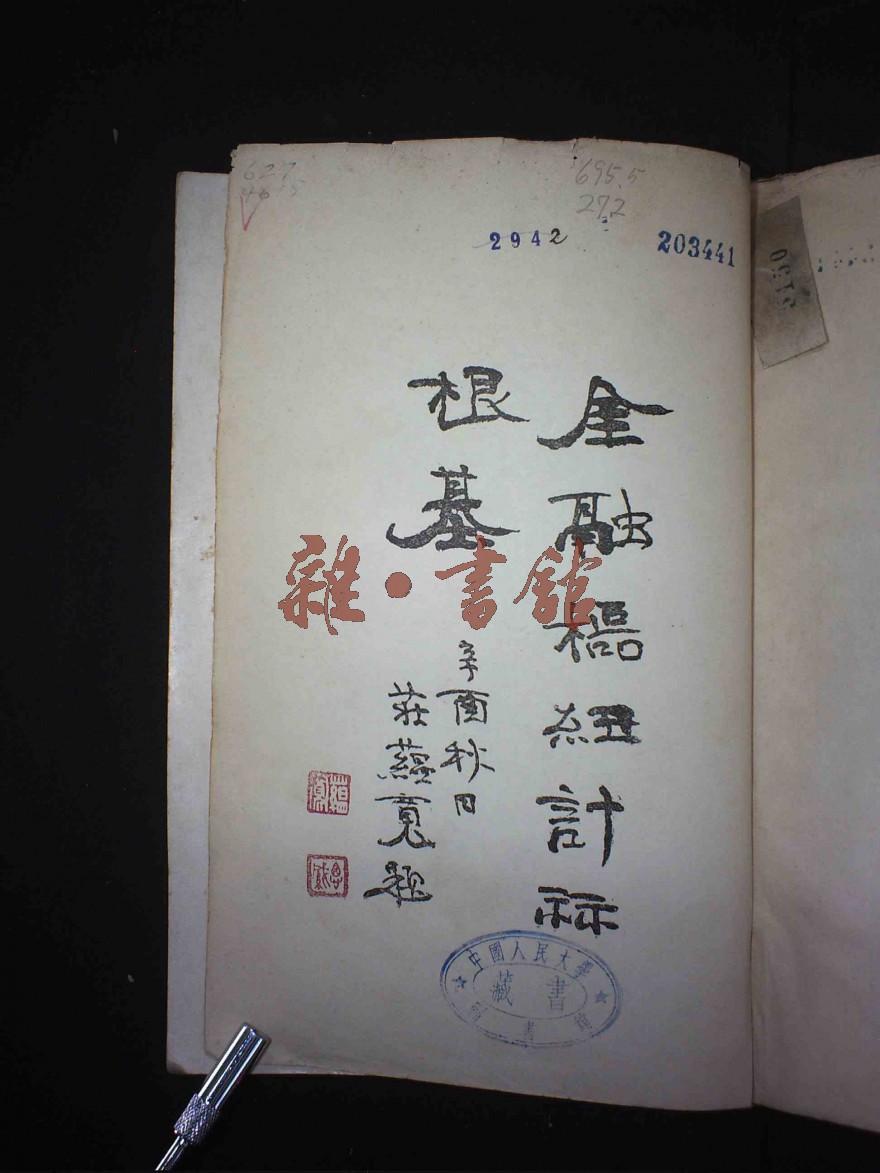 627
695.5
272
2942
203441
金融樞紐計祘
根基
辛酉秋日
莊蘊寬題
蘊寬
雜·書館
中國人民大學
藏書
圖書館